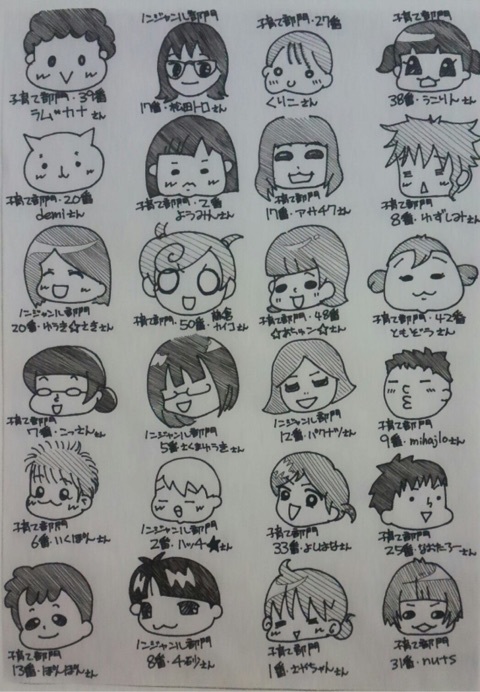 子育て部門・39番
ラム*カナさん
ノンジャンル部門
17番・松田トロさん
子育て部門・27番
くりこさん
子育て部門
38番・うこりんさん
子育て部門・20番
demiさん
子育て部門・2番
ようみんさん
子育て部門
17番・アサ47さん
子育て部門
8番・ゆずしみさん
ノンジャンル部門
20番・ゆうき☆さきさん
子育て部門・50番
カイコさん
子育て部門・48番
☆おちゅん☆さん
子育て部門・42番
ともぞうさん
子育て部門
7番・こっさんさん
ノンジャンル部門
5番・さくまゆうきさん
ノンジャンル部門
12番・パクナツさん
子育て部門
9番・mihajloさん
子育て部門
6番・いくぽんさん
ノンジャンル部門
2番・ハッチ★さん
子育て部門
33番・よしはなさん
子育て部門
25番・なおたろーさん
子育て部門
13番・ぽんぽんさん
ノンジャンル部門
8番・さん
子育て部門
1番・さやちゃんさん
子育て部門
31番・nutsさん